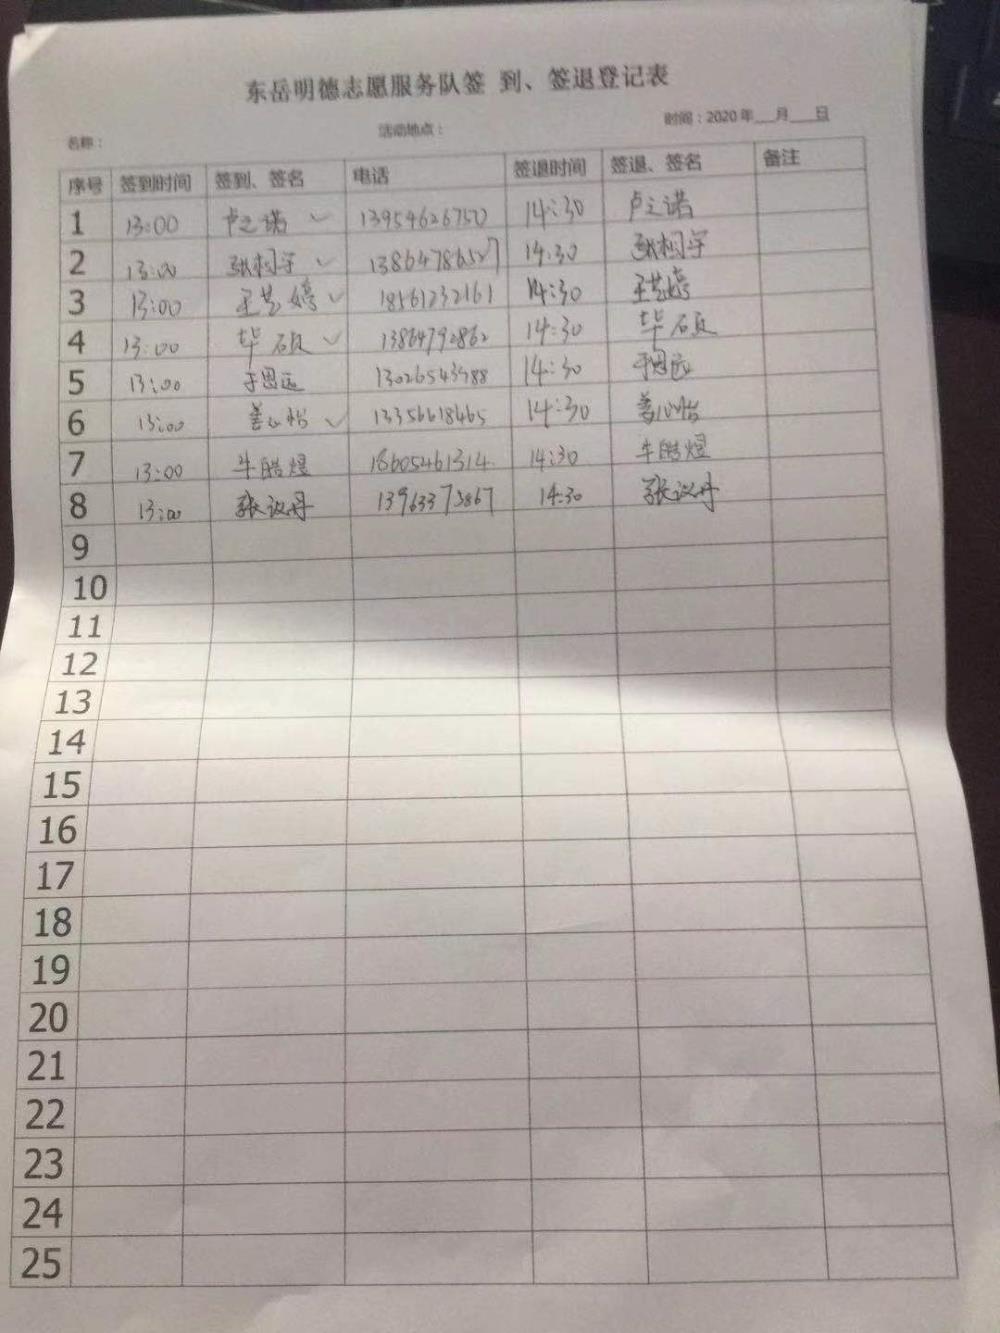 东岳明德志愿服务队签 到、签退登记表
名称： 活动地点： 时间：2020 年___月___日
序号 签到时间 签到、签名 电话 签退时间 签退、签名 备注
1 13:00 卢之诺 ✓ 13954626750 14:30 卢之诺
2 13:00 张柯宇 ✓ 14:30 张柯宇
3 13:00 王艺婷 ✓ 18561232161 14:30 王艺婷
4 13:00 毕硕 ✓ 13864792862 14:30 毕硕
5 13:00 于恩远 14:30 于恩远
6 13:00 姜心怡 ✓ 13356618465 14:30 姜心怡
7 13:00 牛皓煜 18605461314 14:30 牛皓煜
8 13:00 张议丹 13963373867 14:30 张议丹
9
10
11
12
13
14
15
16
17
18
19
20
21
22
23
24
25